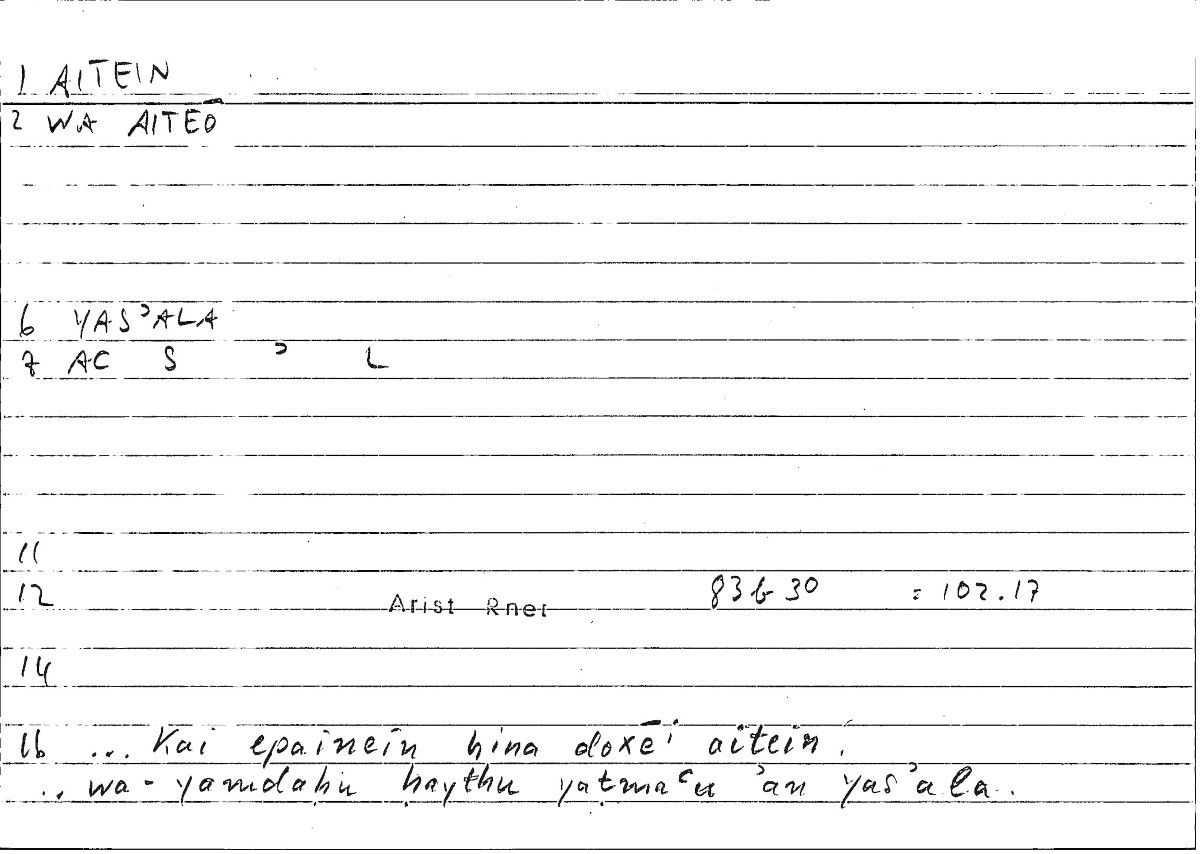 1 AITEIN
2 WA AITEŌ
6 YASʾALA
7 AC S ʾ L
11
12 Arist Rhet 83b30 = 102.17
14
16 ... Kai epainein hina doxēi aitein.
.. wa-yamdaḥu ḥaythu yaṭmaʿu ʾan yasʾala.